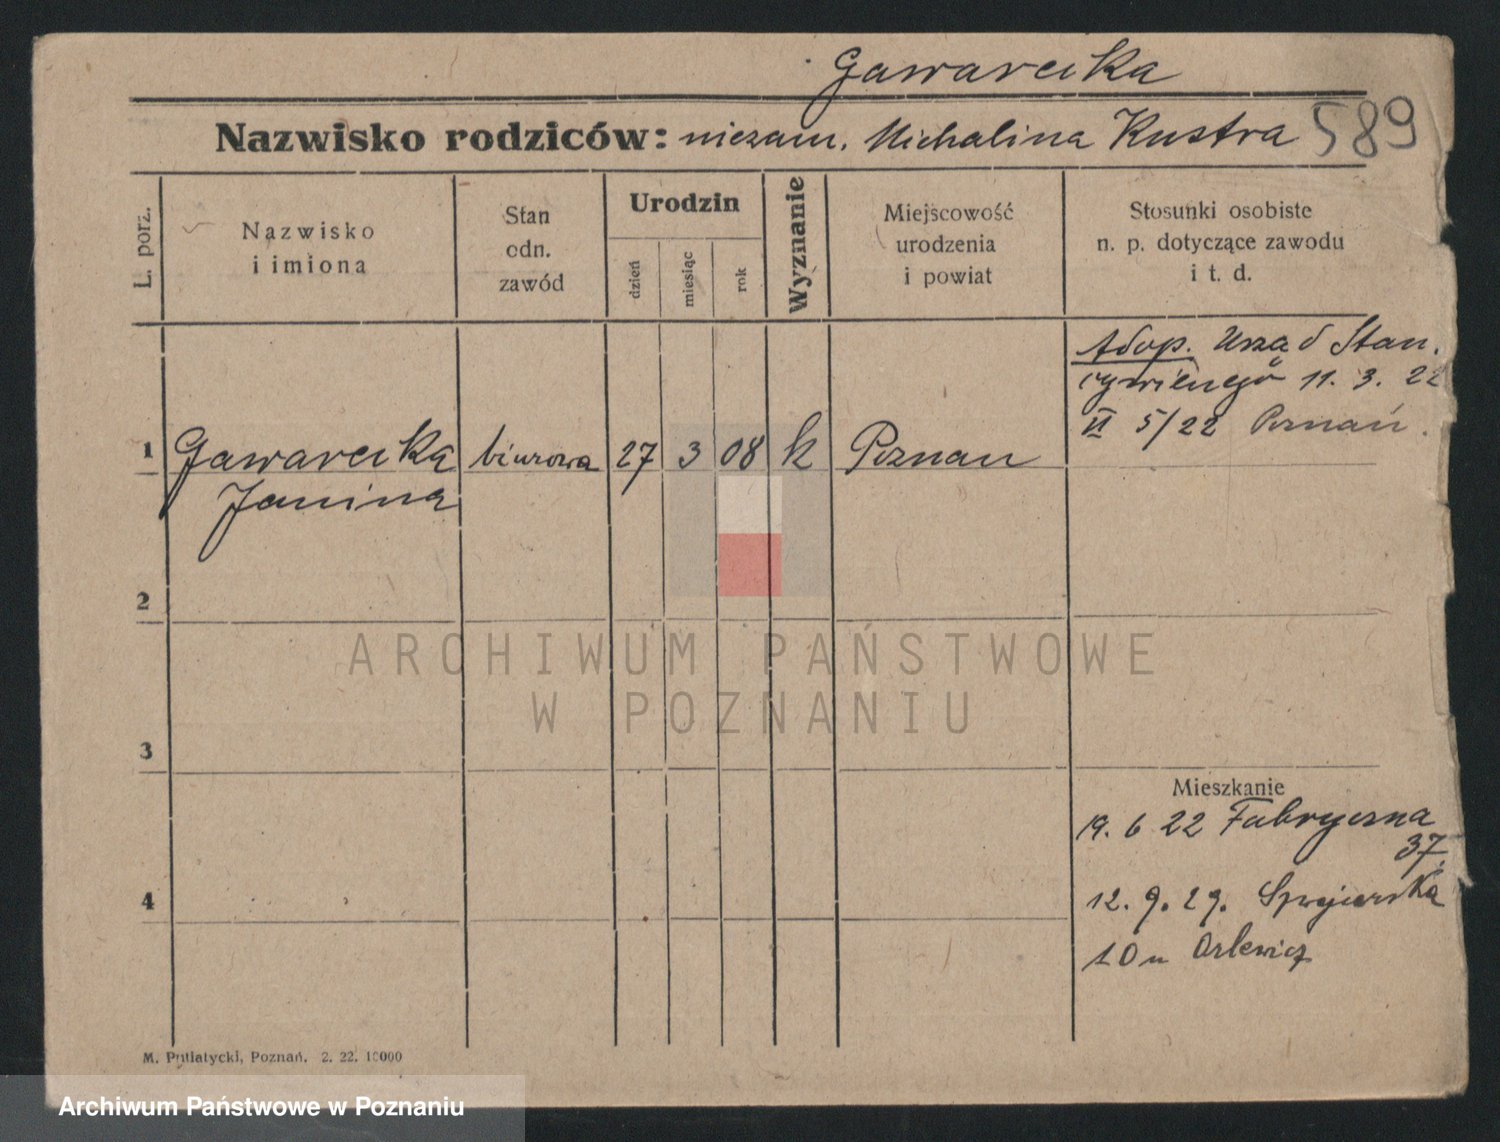 Gawarecka
Nazwisko rodziców: niezam. Michalina Kustra 589
L. porz.
Nazwisko
i imiona
Stan
odn.
zawód
Urodzin
dzień
miesiąc
rok
Wyznanie
Miejscowość
urodzenia
i powiat
Stosunki osobiste
n. p. dotyczące zawodu
i t. d.
Adop. Urząd Stan.
cywilnego 11. 3. 22
VI 5/22 Poznań.
1 Gawarecka biurowa 27 3 08 k Poznań
Janina
2
ARCHIWUM PAŃSTWOWE
W POZNANIU
3
Mieszkanie
19. 6 22 Fabryczna
37.
4
12. 9. 29.
10 u
M. Putiatycki, Poznań. 2. 22. 10000
Archiwum Państwowe w Poznaniu